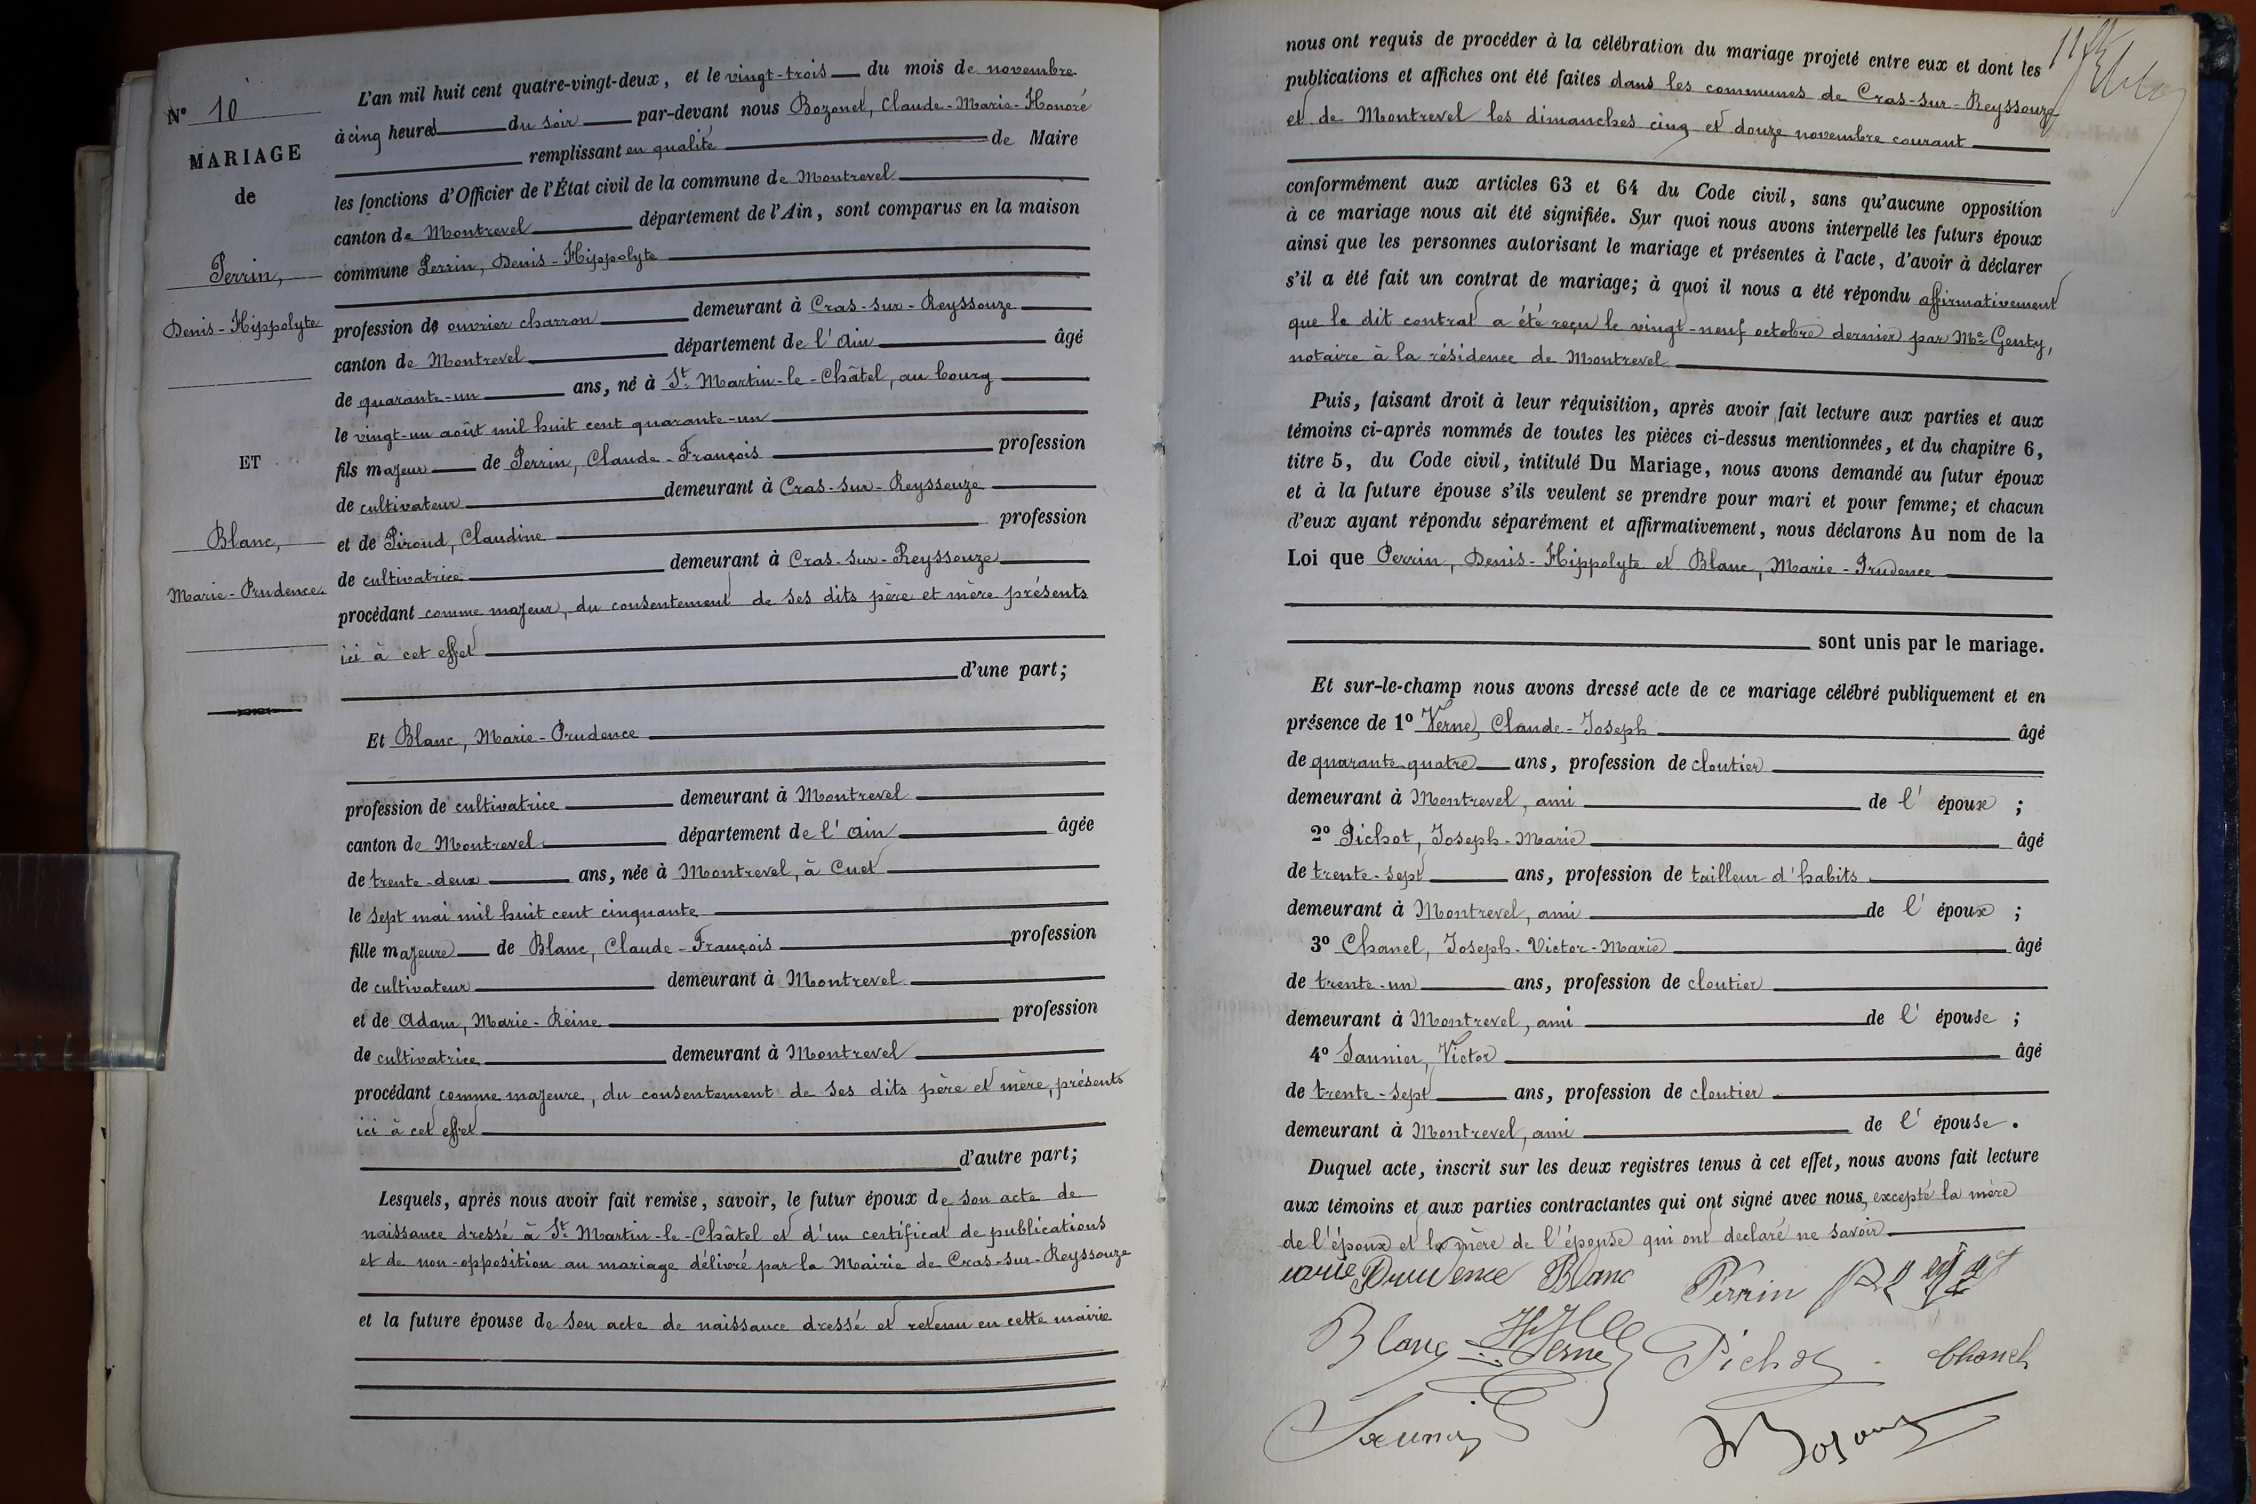 N° 10
MARIAGE
de
Perrin,
Denis-Hippolyte
ET
Blanc,
Marie-Prudence.
L'an mil huit cent quatre-vingt-deux, et le vingt-trois du mois de novembre
à cinq heures du soir par-devant nous Bozonet, Claude-Marie-Honoré
remplissant en qualité de Maire
les fonctions d'Officier de l'État civil de la commune de Montrevel
canton de Montrevel département de l'Ain, sont comparus en la maison
commune Perrin, Denis-Hippolyte
profession de ouvrier charron demeurant à Cras-sur-Reyssouze
canton de Montrevel département de l'Ain âgé
de quarante-un ans, né à St Martin-le-Châtel, au bourg
le vingt-un août mil huit cent quarante-un
fils majeur de Perrin, Claude-François profession
de cultivateur demeurant à Cras-sur-Reyssouze
et de Piroud, Claudine profession
de cultivatrice demeurant à Cras-sur-Reyssouze
procédant comme majeur, du consentement de ses dits père et mère présents
ici à cet effet
d'une part;
Et Blanc, Marie-Prudence
profession de cultivatrice demeurant à Montrevel
canton de Montrevel département de l'Ain âgée
de trente-deux ans, née à Montrevel, à Cuet
le sept mai mil huit cent cinquante
fille majeure de Blanc, Claude-François profession
de cultivateur demeurant à Montrevel
et de Adam, Marie-Reine profession
de cultivatrice demeurant à Montrevel
procédant comme majeure, du consentement de ses dits père et mère, présents
ici à cet effet
d'autre part;
Lesquels, après nous avoir fait remise, savoir, le futur époux de son acte de
naissance dressé à St Martin-le-Châtel et d'un certificat de publications
et de non-opposition au mariage délivré par la Mairie de Cras-sur-Reyssouze
et la future épouse de son acte de naissance dressé et retenu en cette mairie
nous ont requis de procéder à la célébration du mariage projeté entre eux et dont les
publications et affiches ont été faites dans les communes de Cras-sur-Reyssouze
et de Montrevel les dimanches cinq et douze novembre courant
conformément aux articles 63 et 64 du Code civil, sans qu'aucune opposition
à ce mariage nous ait été signifiée. Sur quoi nous avons interpellé les futurs époux
ainsi que les personnes autorisant le mariage et présentes à l'acte, d'avoir à déclarer
s'il a été fait un contrat de mariage; à quoi il nous a été répondu affirmativement
que le dit contrat a été reçu le vingt-neuf octobre dernier par Me Genty,
notaire à la résidence de Montrevel
Puis, faisant droit à leur réquisition, après avoir fait lecture aux parties et aux
témoins ci-après nommés de toutes les pièces ci-dessus mentionnées, et du chapitre 6,
titre 5, du Code civil, intitulé Du Mariage, nous avons demandé au futur époux
et à la future épouse s'ils veulent se prendre pour mari et pour femme; et chacun
d'eux ayant répondu séparément et affirmativement, nous déclarons Au nom de la
Loi que Perrin, Denis-Hippolyte et Blanc, Marie-Prudence
sont unis par le mariage.
Et sur-le-champ nous avons dressé acte de ce mariage célébré publiquement et en
présence de 1° Verne, Claude-Joseph âgé
de quarante-quatre ans, profession de cloutier
demeurant à Montrevel, ami de l'époux;
2° Pichot, Joseph-Marie âgé
de trente-sept ans, profession de tailleur d'habits
demeurant à Montrevel, ami de l'époux;
3° Chanel, Joseph-Victor-Marie âgé
de trente-un ans, profession de cloutier
demeurant à Montrevel, ami de l'épouse;
4° Saunier, Victor âgé
de trente-sept ans, profession de cloutier
demeurant à Montrevel, ami de l'épouse.
Duquel acte, inscrit sur les deux registres tenus à cet effet, nous avons fait lecture
aux témoins et aux parties contractantes qui ont signé avec nous, excepté la mère
de l'époux et la mère de l'épouse qui ont déclaré ne savoir
marie Prudence Blanc Perrin
Blanc Verne Pichot Chanel
Saunier Bozonet